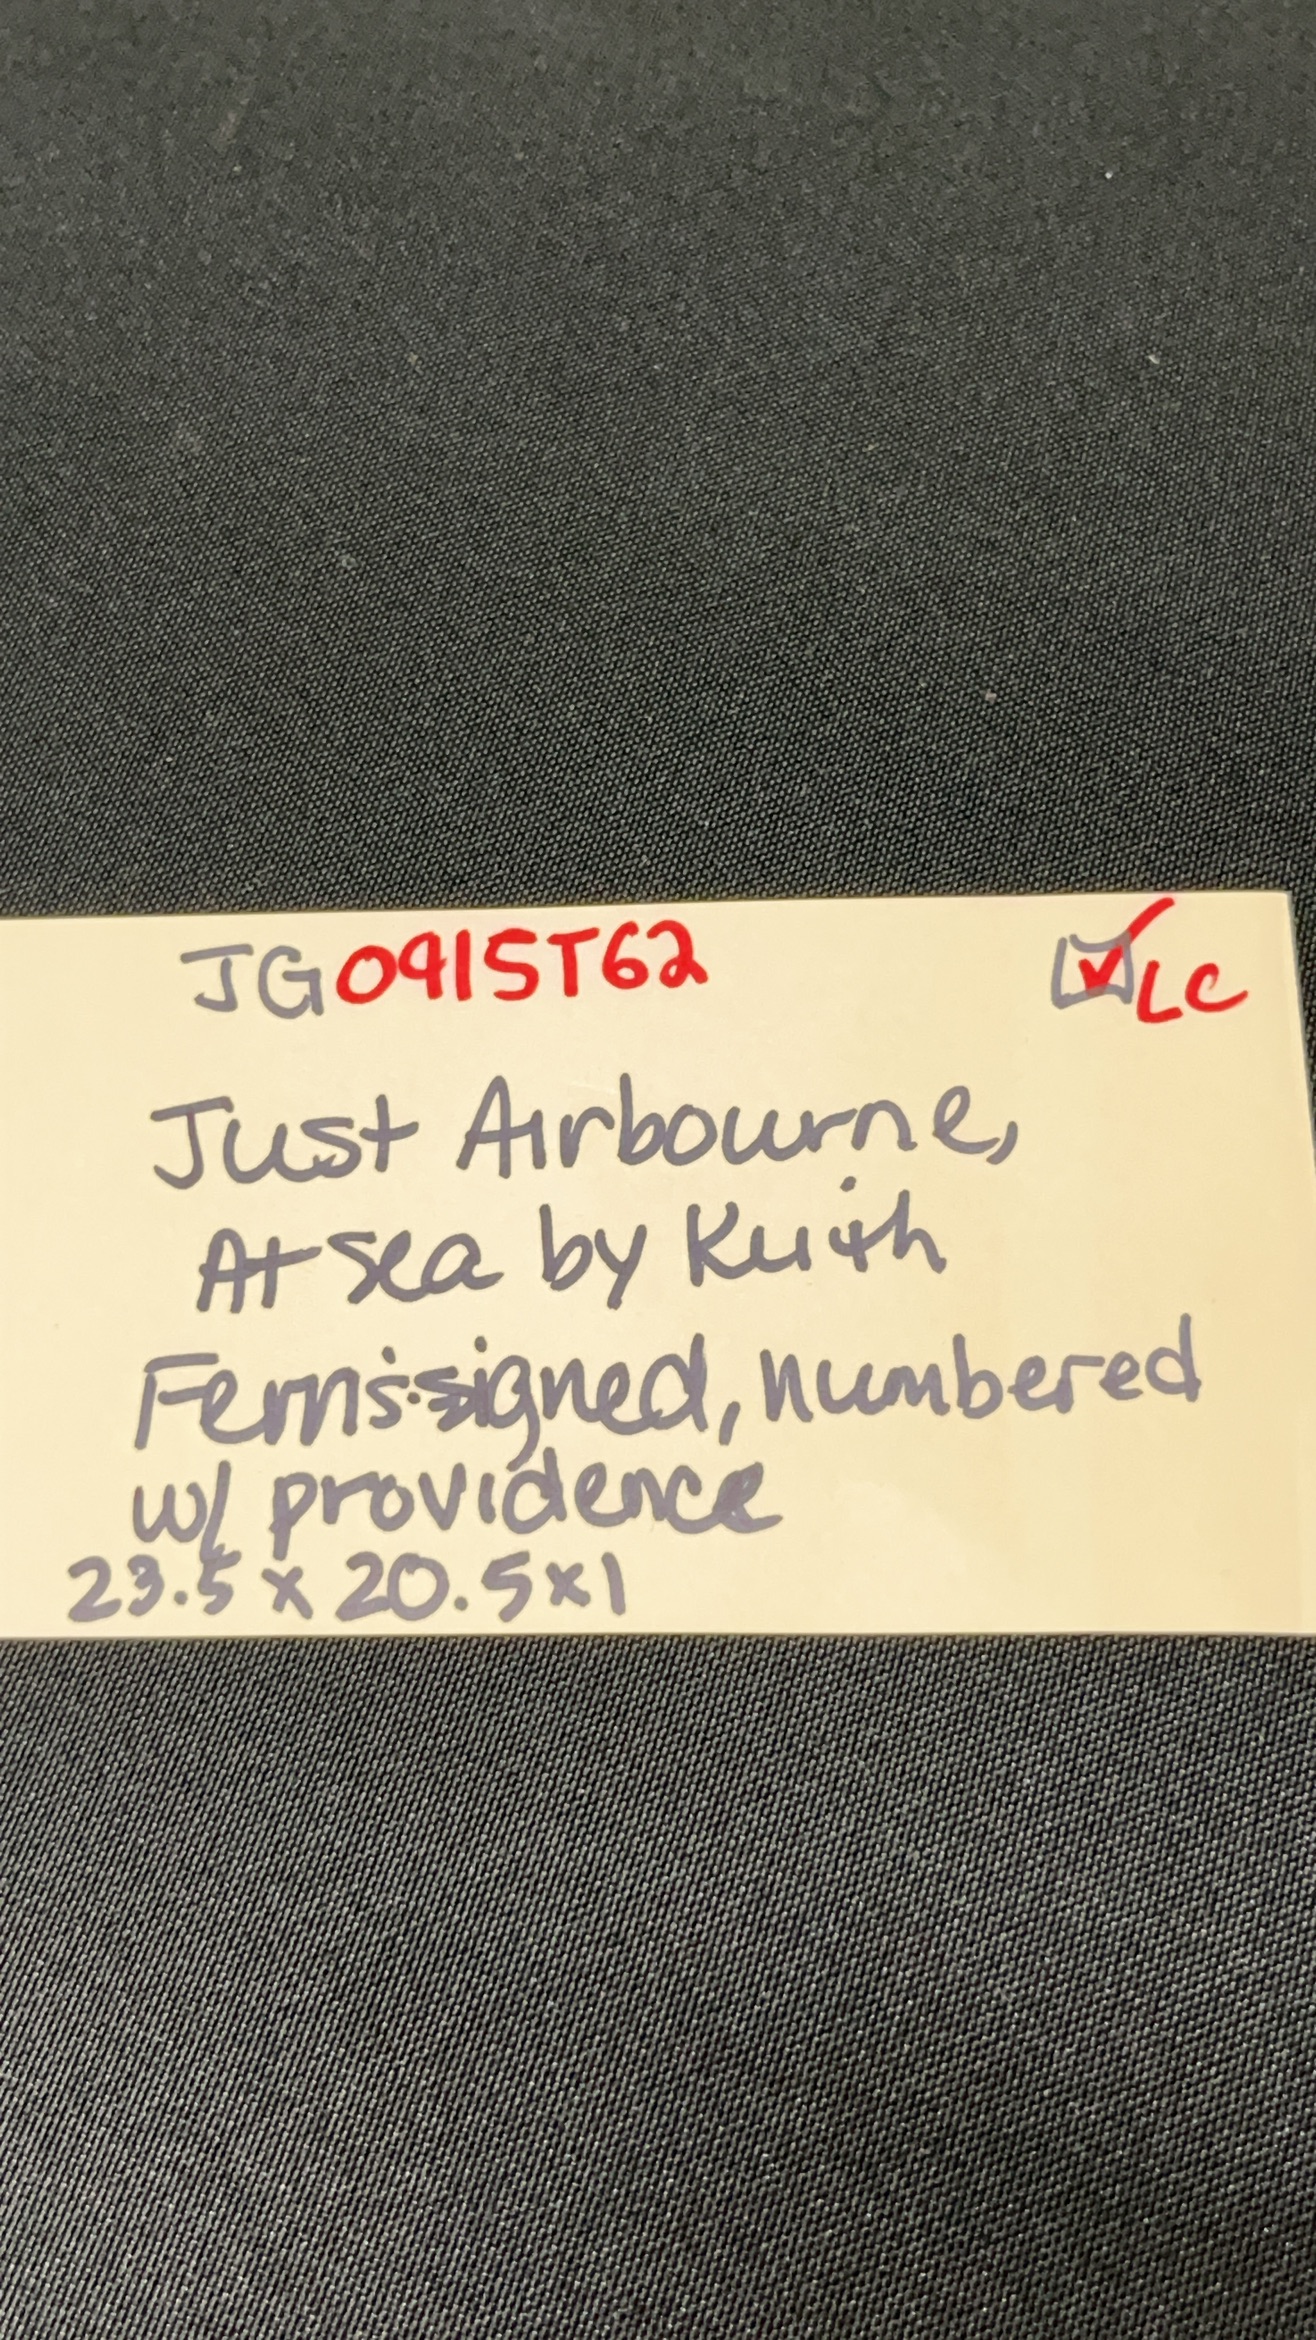 JG0915T62 ☑LC
Just Airbourne,
At sea by Keith
Ferris signed, numbered
w/ providence
23.5 x 20.5x1